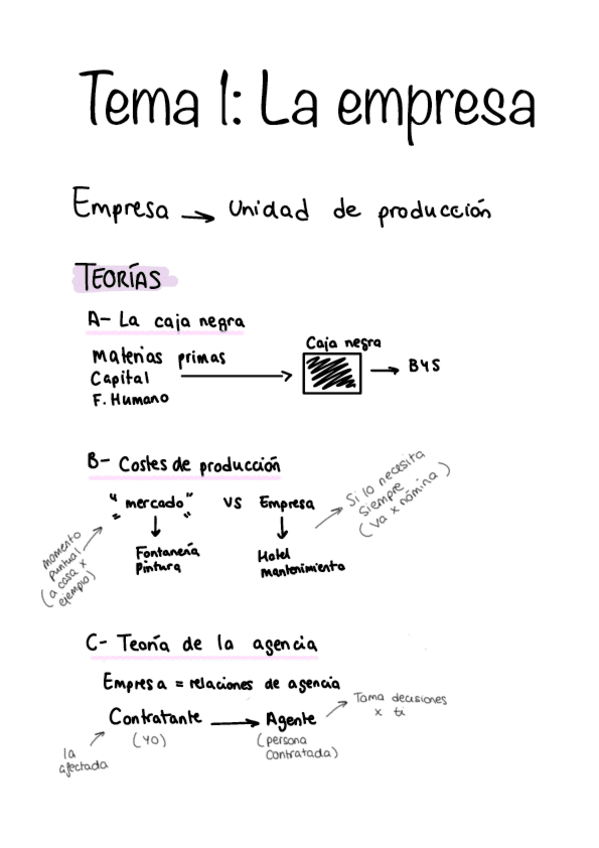 Tema 1: La empresa
Empresa → Unidad de producción
TEORÍAS
A- La caja negra
Caja negra
Materias primas
Capital → → BYS
F. Humano
B- Costes de producción
"mercado" VS Empresa
Si lo necesita
siempre
(va x nómina)
momento
puntual
(a casa x
ejemplo)
Fontanería
Pintura
Hotel
mantenimiento
C- Teoría de la agencia
Empresa = relaciones de agencia
Contratante → Agente
Toma decisiones
x ti
(yo)
(persona
contratada)
la
afectada